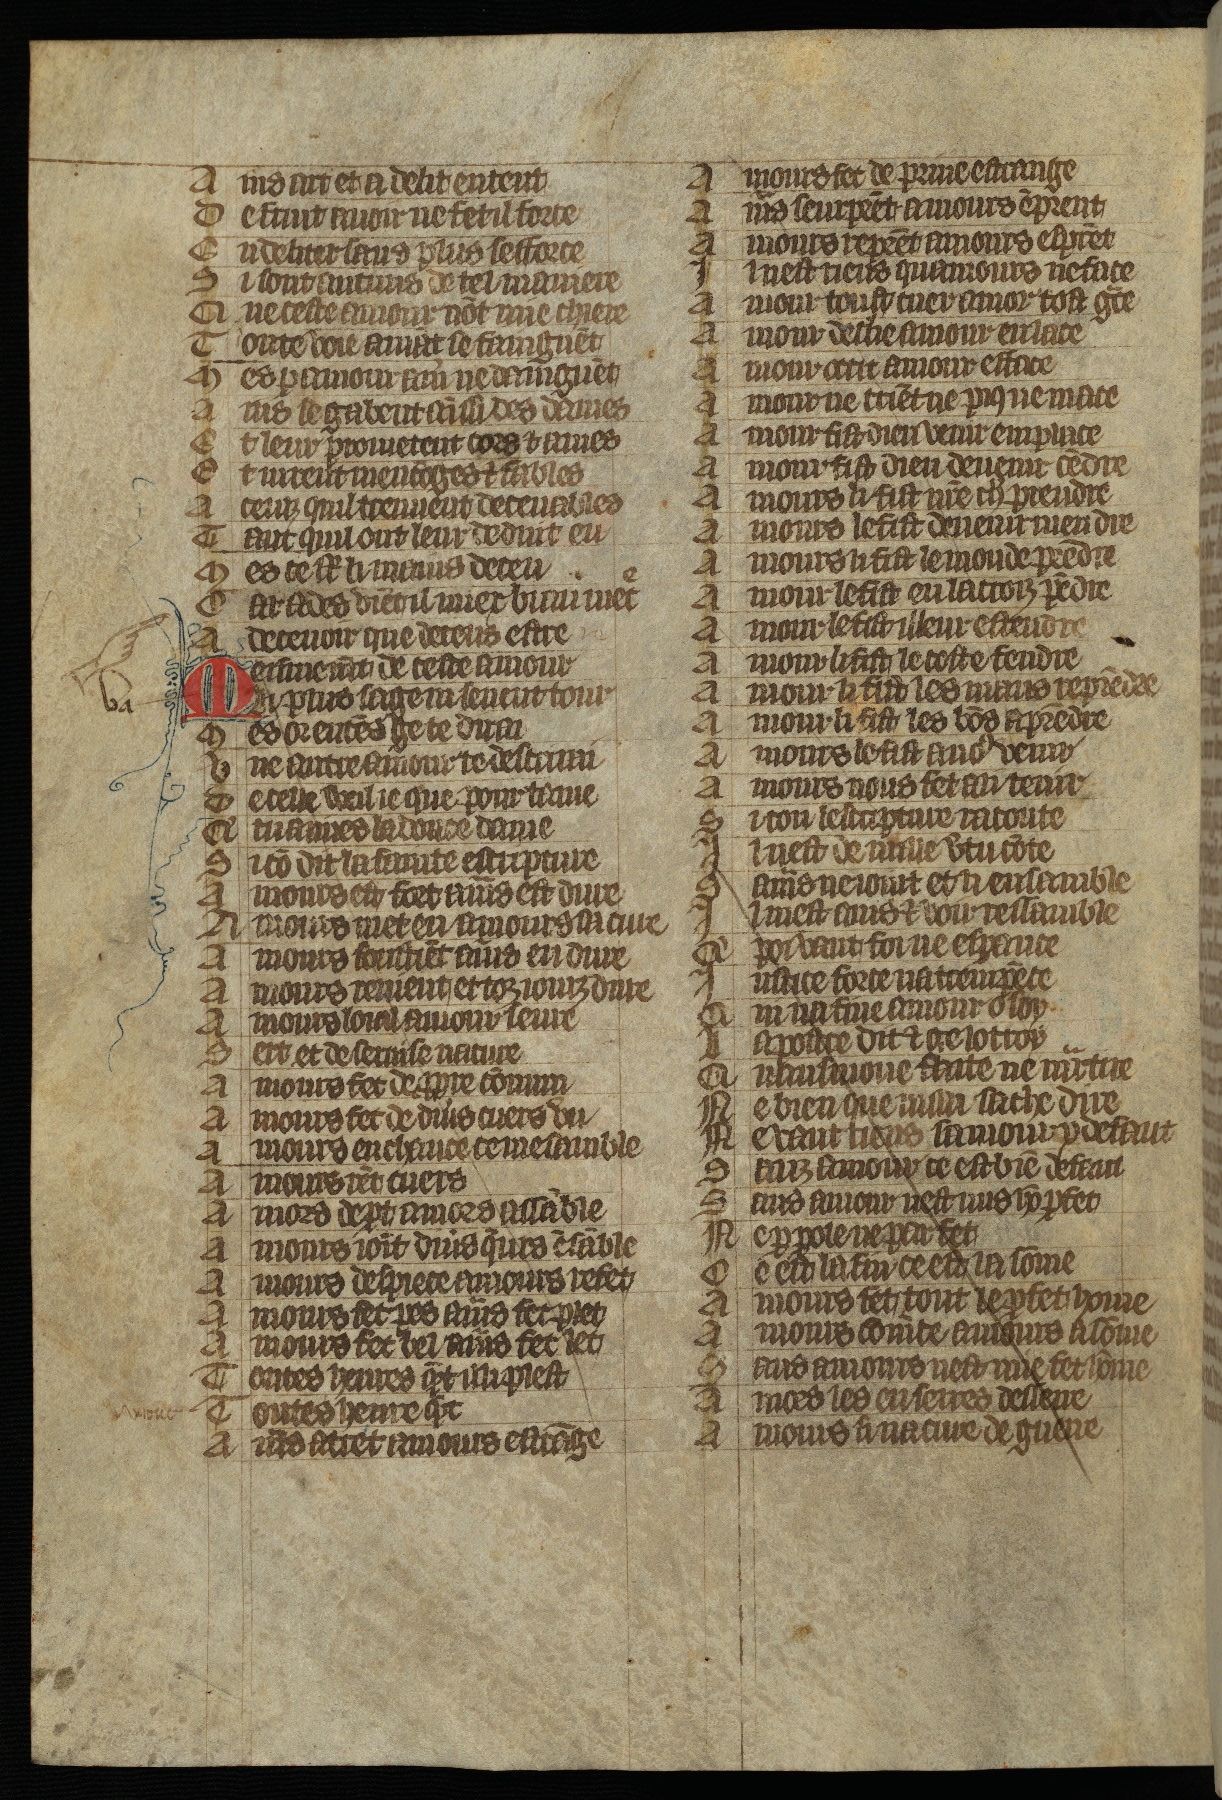 A ins art et a delit entent
D e fruit auoir ne fet il force
E n deliter sans plus sefforce
S i sont aucuns de tel maniere
Q ui ceste amour nōt mie chiere
T oute voie amāt se faingnēt
M es p amour am̄ ne daingnēt
A ins se gabent aussi des dames
E t leur prometent cors & ames
E t iurent mencōges & fables
A ceus quil treuuent deceuables
T ant quil ont leur deduit eu
M es ce st li mains deceu
C ar ades viēt il miex biau mestre
A deceuoir que deceus estre
M es finemt de ceste amour
Li plus sage ni seuent tour
M es or entēs ge te dirai
V ne autre amour te descrirai
D e celle voeil ie que pour lame
Q tu aimes la douce dame
S i cō dit la sainte escripture
A mours est fort am̄s est dure
A mours met en amours sa cure
A mours soustiēt am̄s en dure
A mours reuient et toz iourz dure
A mours loial amour seure
S ert et de seruise na cure
A mours fet de ppre cōmun
A mours fet de diuīs cuers vn
A mours enchauce ce me samble
A mours rēt cuers
A mors dept amors assāble
A mours ioīt diuīs q̄urs ēsāble
A mours despiece amours refet
A mours fet pes am̄s fet plet
A mours fet bel am̄s fet let
T outes heures q̄nt il li plest
T outes heure q̄nt
A m̄s atret amours estrāge
A mours fet de priue estrange
A m̄s seurprēt amours ēprent
A mours reprēt amours esprēt
I l nest riens quamours ne face
A mour toust cuer amor tost grc̄e
A mour deslie amour enlace
A mour occit amour efface
A mour ne criēt ne piq ne mace
A mour fist dieu venir en place
A mour fist dieu deuenir cēdre
A mours li fist nr̄e ch̄ prendre
A mours le fist deuenir mendre
A mours li fist le monde prēdre
A mour le fist en la croiz pēdre
A mour le fist illeur estendre
A mour li fist le coste fendre
A mour li fist les maus reprēdre
A mour li fist les bōs aprēdre
A mours le fist a no9 venir
A mours nous fet a li tenir
S i con lescripture raconte
I l nest de nulle v̄tu cōte
S am̄s ne ioint et li ensamble
I l mest auis & voir ressamble
Q poi vaut foi ne esperance
I ustice force natemprāce
Q ui na fine amour o soy
L apostre dit & ge lottroy
Q aumosne faite ne martire
N e bien que nului sache dire
N e vaut riens samour y defaut
S anz amour ce est biē defaut
S ans amour nest nus hō pfet
N e p pole ne par fet
C e est la fin ce est la sōme
A mours fet tout le pfet home
A mours cōmēce amours asōme
S ans amours nest mie fet hōme
A mors les enserres desserre
A mours si na cure de guerre